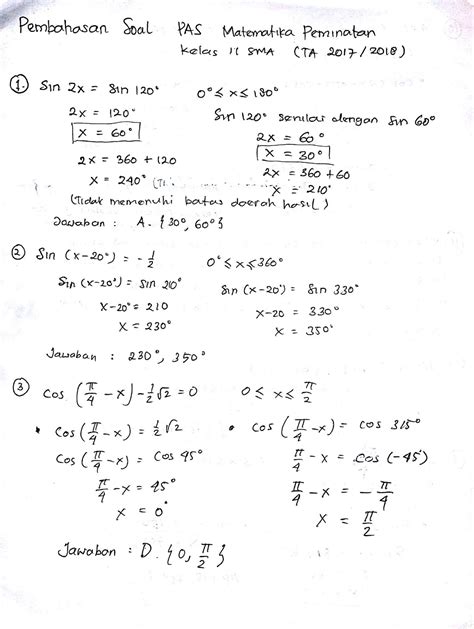 Pembahasan Soal PAS Matematika Peminatan
Kelas 11 SMA (TA 2017/2018)
① Sin 2x = sin 120° 0° ≤ x ≤ 180°
2x = 120° Sin 120° senilai dengan sin 60°
x = 60° 2x = 60°
2x = 360 + 120 x = 30°
x = 240° 2x = 360 + 60
x = 210°
(Tidak memenuhi batas daerah hasil)
Jawaban : A. {30°, 60°}
② Sin (x-20°) = -1/2 0° ≤ x ≤ 360°
Sin (x-20°) = sin 210° Sin (x-20°) = sin 330°
x-20° = 210 x-20 = 330°
x = 230° x = 350°
Jawaban : 230°, 350°
③ Cos (π/4 - x) - 1/2√2 = 0 0 ≤ x ≤ π/2
• Cos (π/4 - x) = 1/2√2 • Cos (π/4 - x) = cos 315°
Cos (π/4 - x) = Cos 45° π/4 - x = cos (-45°)
π/4 - x = 45° π/4 - x = -π/4
x = 0° x = π/2
Jawaban : D. {0, π/2}